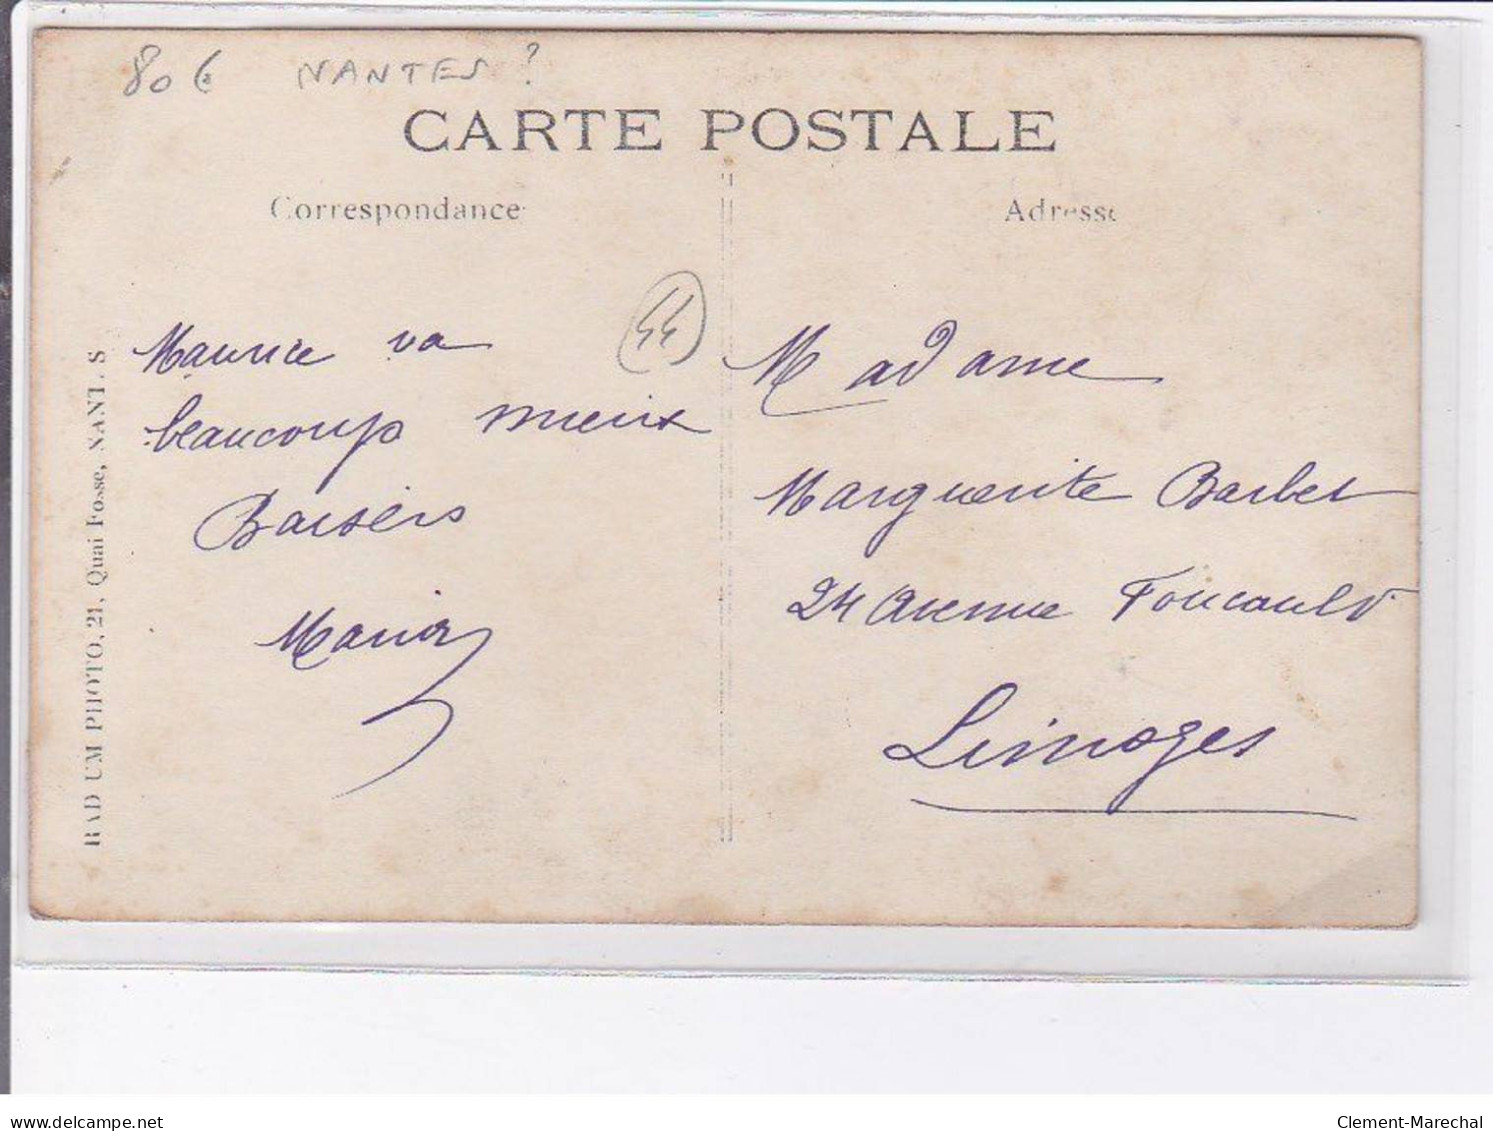 80€ NANTES ?
CARTE POSTALE
Correspondance
Adresse
44
Maurice va
beaucoup mieux
Baisers
Maria
Madame
Marguerite Barbet
24 Avenue Foucauld
Limoges
RADIUM PHOTO, 21, Quai Fosse, NANTES
delcampe.net
Clement-Marechal